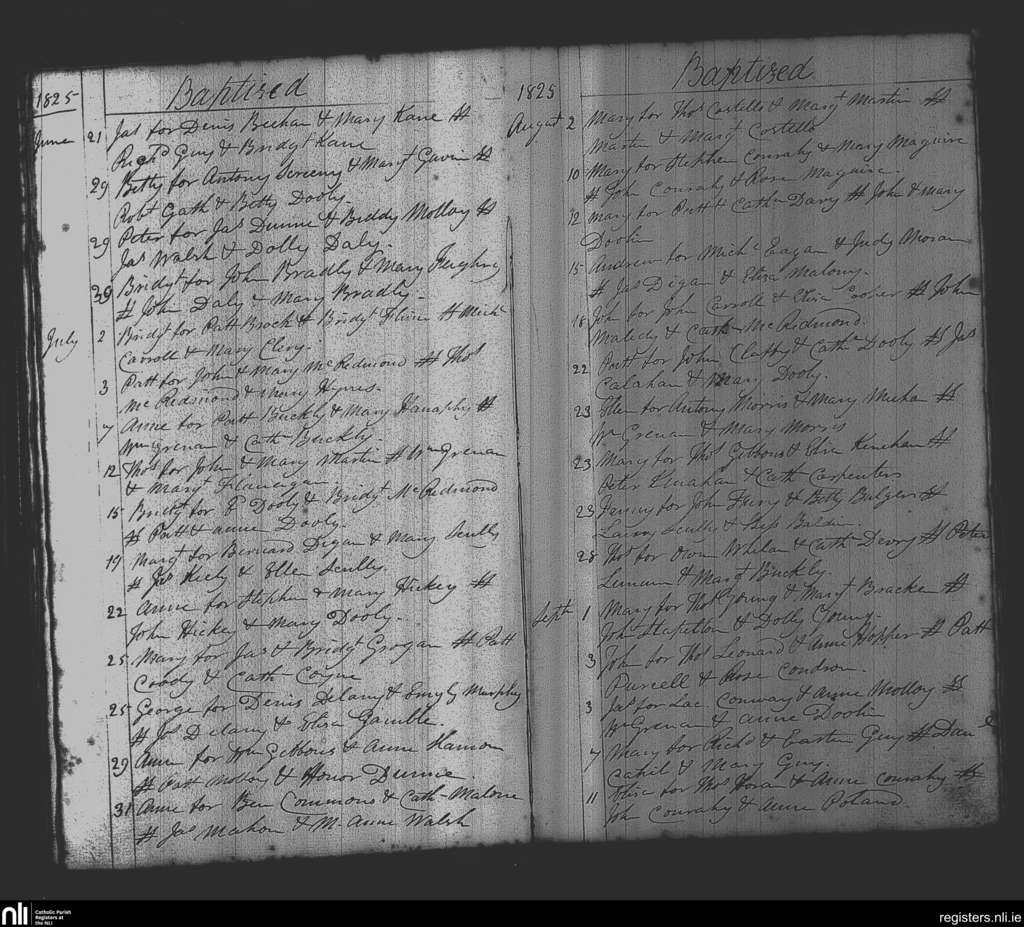 1825
Baptized
June 21 Jas for Denis Beehan & Mary Kane #
Richd Guy & Bridgt Kane
29 Betty for Antony & Margt Gavin #
Robt Gath & Betty Dooly.
29 Peter for Jas Dunne & Biddy Molloy #
Jas Walsh & Dolly Daly.
30 Bridgt for John Bradly & Mary
# John Daly & Mary Bradly.
July 2 Bridgt for Patt Brock & Bridgt # Michl
Carroll & Mary Clery.
3 Patt for John & Mary McRedmond # Thos
McRedmond & Mary Hynes.
7 Anne for Patt Buckly & Mary Hanaphy #
Wm Grenan & Cath Buckly.
12 Thos for John & Mary Martin # Wm Grenan
& Margt Flanagan.
15 Bridgt for P Dooly & Bridgt McRedmond
# Patt & Anne Dooly.
19 Margt for Bernard Digan & Mary Scully
# Jas Kiely & Ellen Scully.
22 Anne for Stephen & Mary Hickey #
John Hickey & Mary Dooly.
25 Mary for Jas & Bridgt Grogan # Patt
Coody & Cath Coyne
25 George for Denis Delany & Murphy
# Jos Delany & Eliza Gamble.
29 Anne for Wm Gibbons & Anne Hamon
# Patt Moloy & Honor Dunne.
31 Anne for Ben Commons & Cath Malone
# Jas Mahon & M. Anne Walsh
1825
Baptized
August 2 Mary for Thos Costello & Margt Martin #
Martin & Margt Costello
10 Mary for Stephen Conrahy & Mary Maguire
# John Conrahy & Rose Maguire.
12 Mary for Patt & Cath Davy # John & Mary
Doolin
15 Andrew for Michl Eagan & Judy Moran
# Jas Digan & Eliza Malony.
18 John for John Carroll & Eliza Cooper # John
Maledy & Cath McRedmond.
22 Patt for John Claffy & Cath Dooly # Jas
Calahan & Mary Dooly.
23 Ellen for Antony Morris & Mary Meehan #
Wm Grenan & Mary Morris
23 Mary for Thos Gibbons & Eliza Kinehan #
Peter & Cath Carpenter
23 Jenny for John Fury & Betty Bulger #
Larry Scully & Bess
28 Thos for Owen Whelan & Cath Devoy # Peter
& Margt Buckly.
Septr 1 Mary for Thos Young & Margt Bracken #
John Stapelton & Dolly Young.
3 John for Thos Leonard & Anne Hopper # Patt
Purcell & Rose Condron.
3 Jas for Lac. Conway & Anne Molloy #
Wm Grenan & Anne Doolin
7 Mary for Richd & Easter Guy # Dan
Cahil & Mary Guy.
11 Eliza for Thos Horan & Anne Conrahy #
John Conrahy & Anne Poland.
nli Catholic Parish
Registers at
the NLI
registers.nli.ie